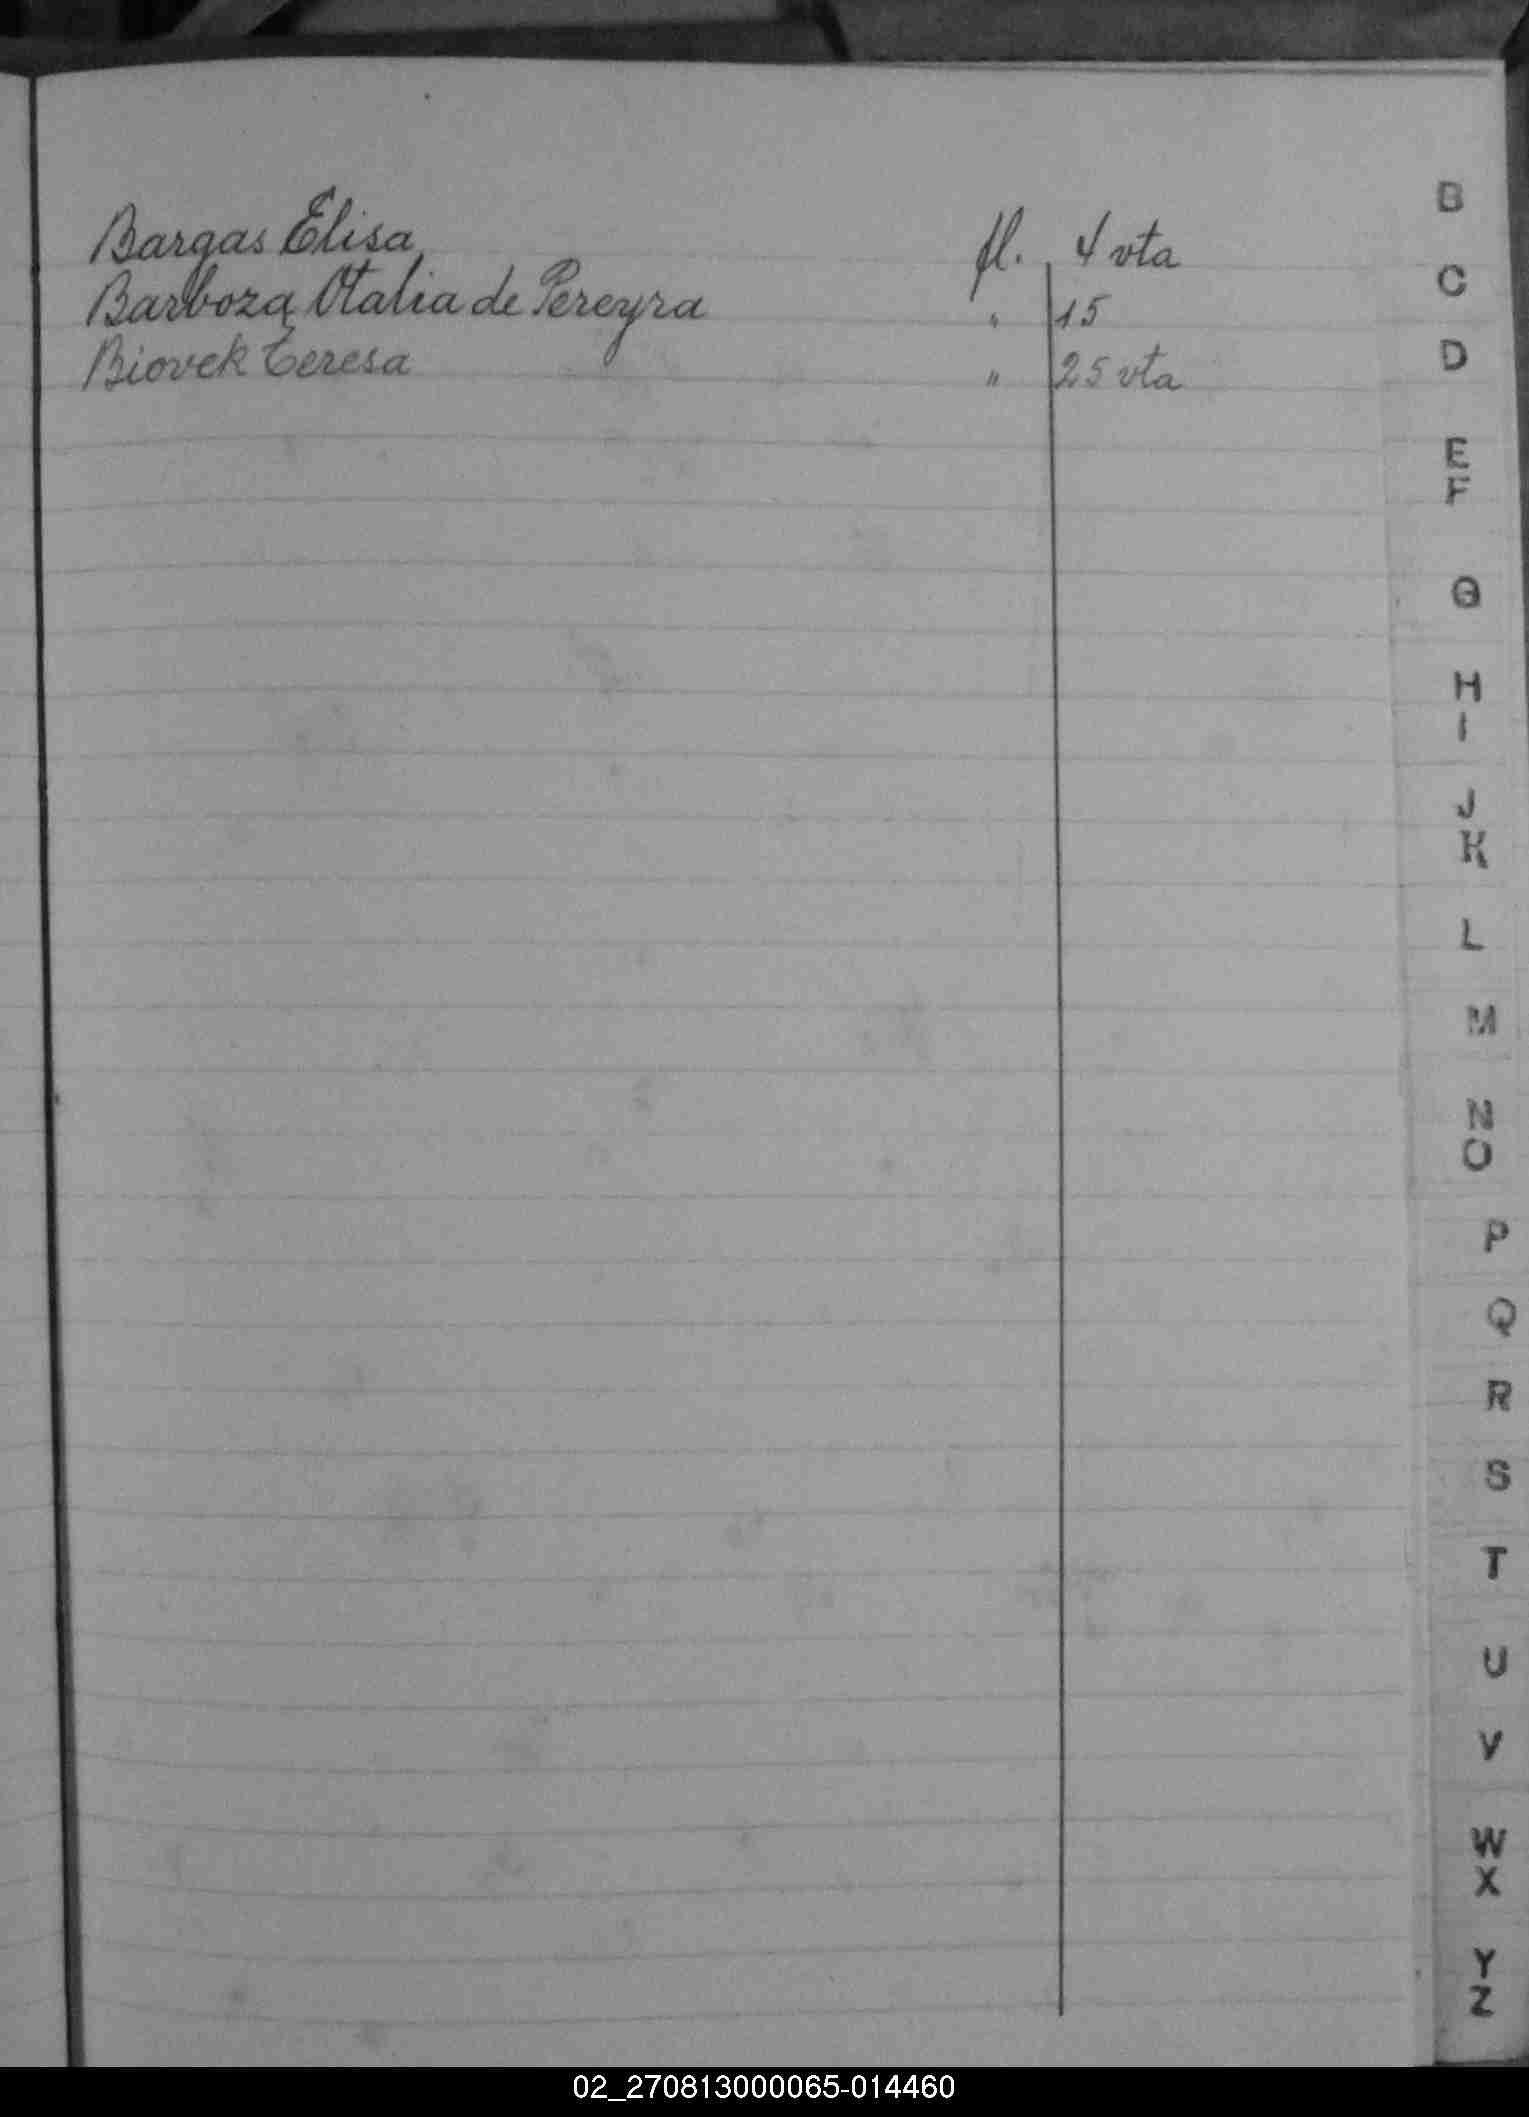 Bargas Elisa fl. 4 vta
Barboza Otalia de Pereyra " 15
Biovek Teresa " 25 vta
B
C
D
E
F
G
H
I
J
K
L
M
N
O
P
Q
R
S
T
U
V
W
X
Y
Z
02_270813000065-014460